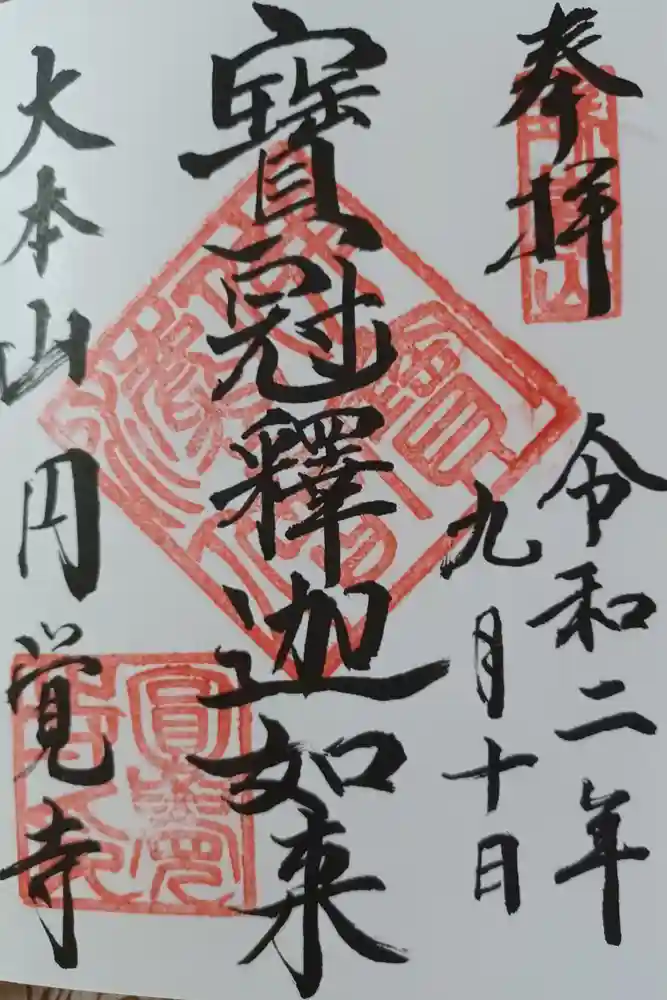 奉拝
令和二年
九月十日
寶冠釋迦如来
大本山円覚寺